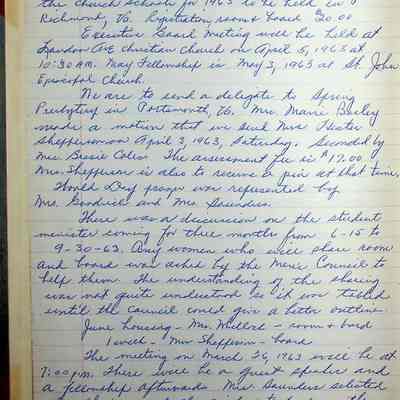 the church schools for 1963 to be held in
Richmond, Va. Registration, room & board 20.00
Executive Board Meeting will be held at
Landon Ave Christian Church on April 5, 1963 at
10:30 A.M. May Fellowship is May 3, 1963 at St. John
Episcopal Church.
We are to send a delegate to Spring
Presbytery in Portsmouth, Va. Mrs. Marie
made a motion that we send Mrs. Hester
Sheffer on April 3, 1963, Saturday. Seconded by
Mrs. Bessie Coles. The assessment fee is $17.00
Mrs. Shefferson is also to receive a pin at that time.
World Day prayer was represented by
Mrs. Goodrich and Mrs. Saunders.
There was a discussion on the student
minister coming for three months from 6-15 to
9-30-63. Any women who will share room
and board was asked by the Men's Council to
help them. The understanding of the sharing
was not quite understood so it was tabled
until the council could give a better outline.
June housing - Mrs. Willord - room & board
1 week - Mrs Shefferson - board
The meeting on March 26, 1963 will be at
7:00 p.m. There will be a guest speaker and
a fellowship afterwards. Mrs. Saunders selected